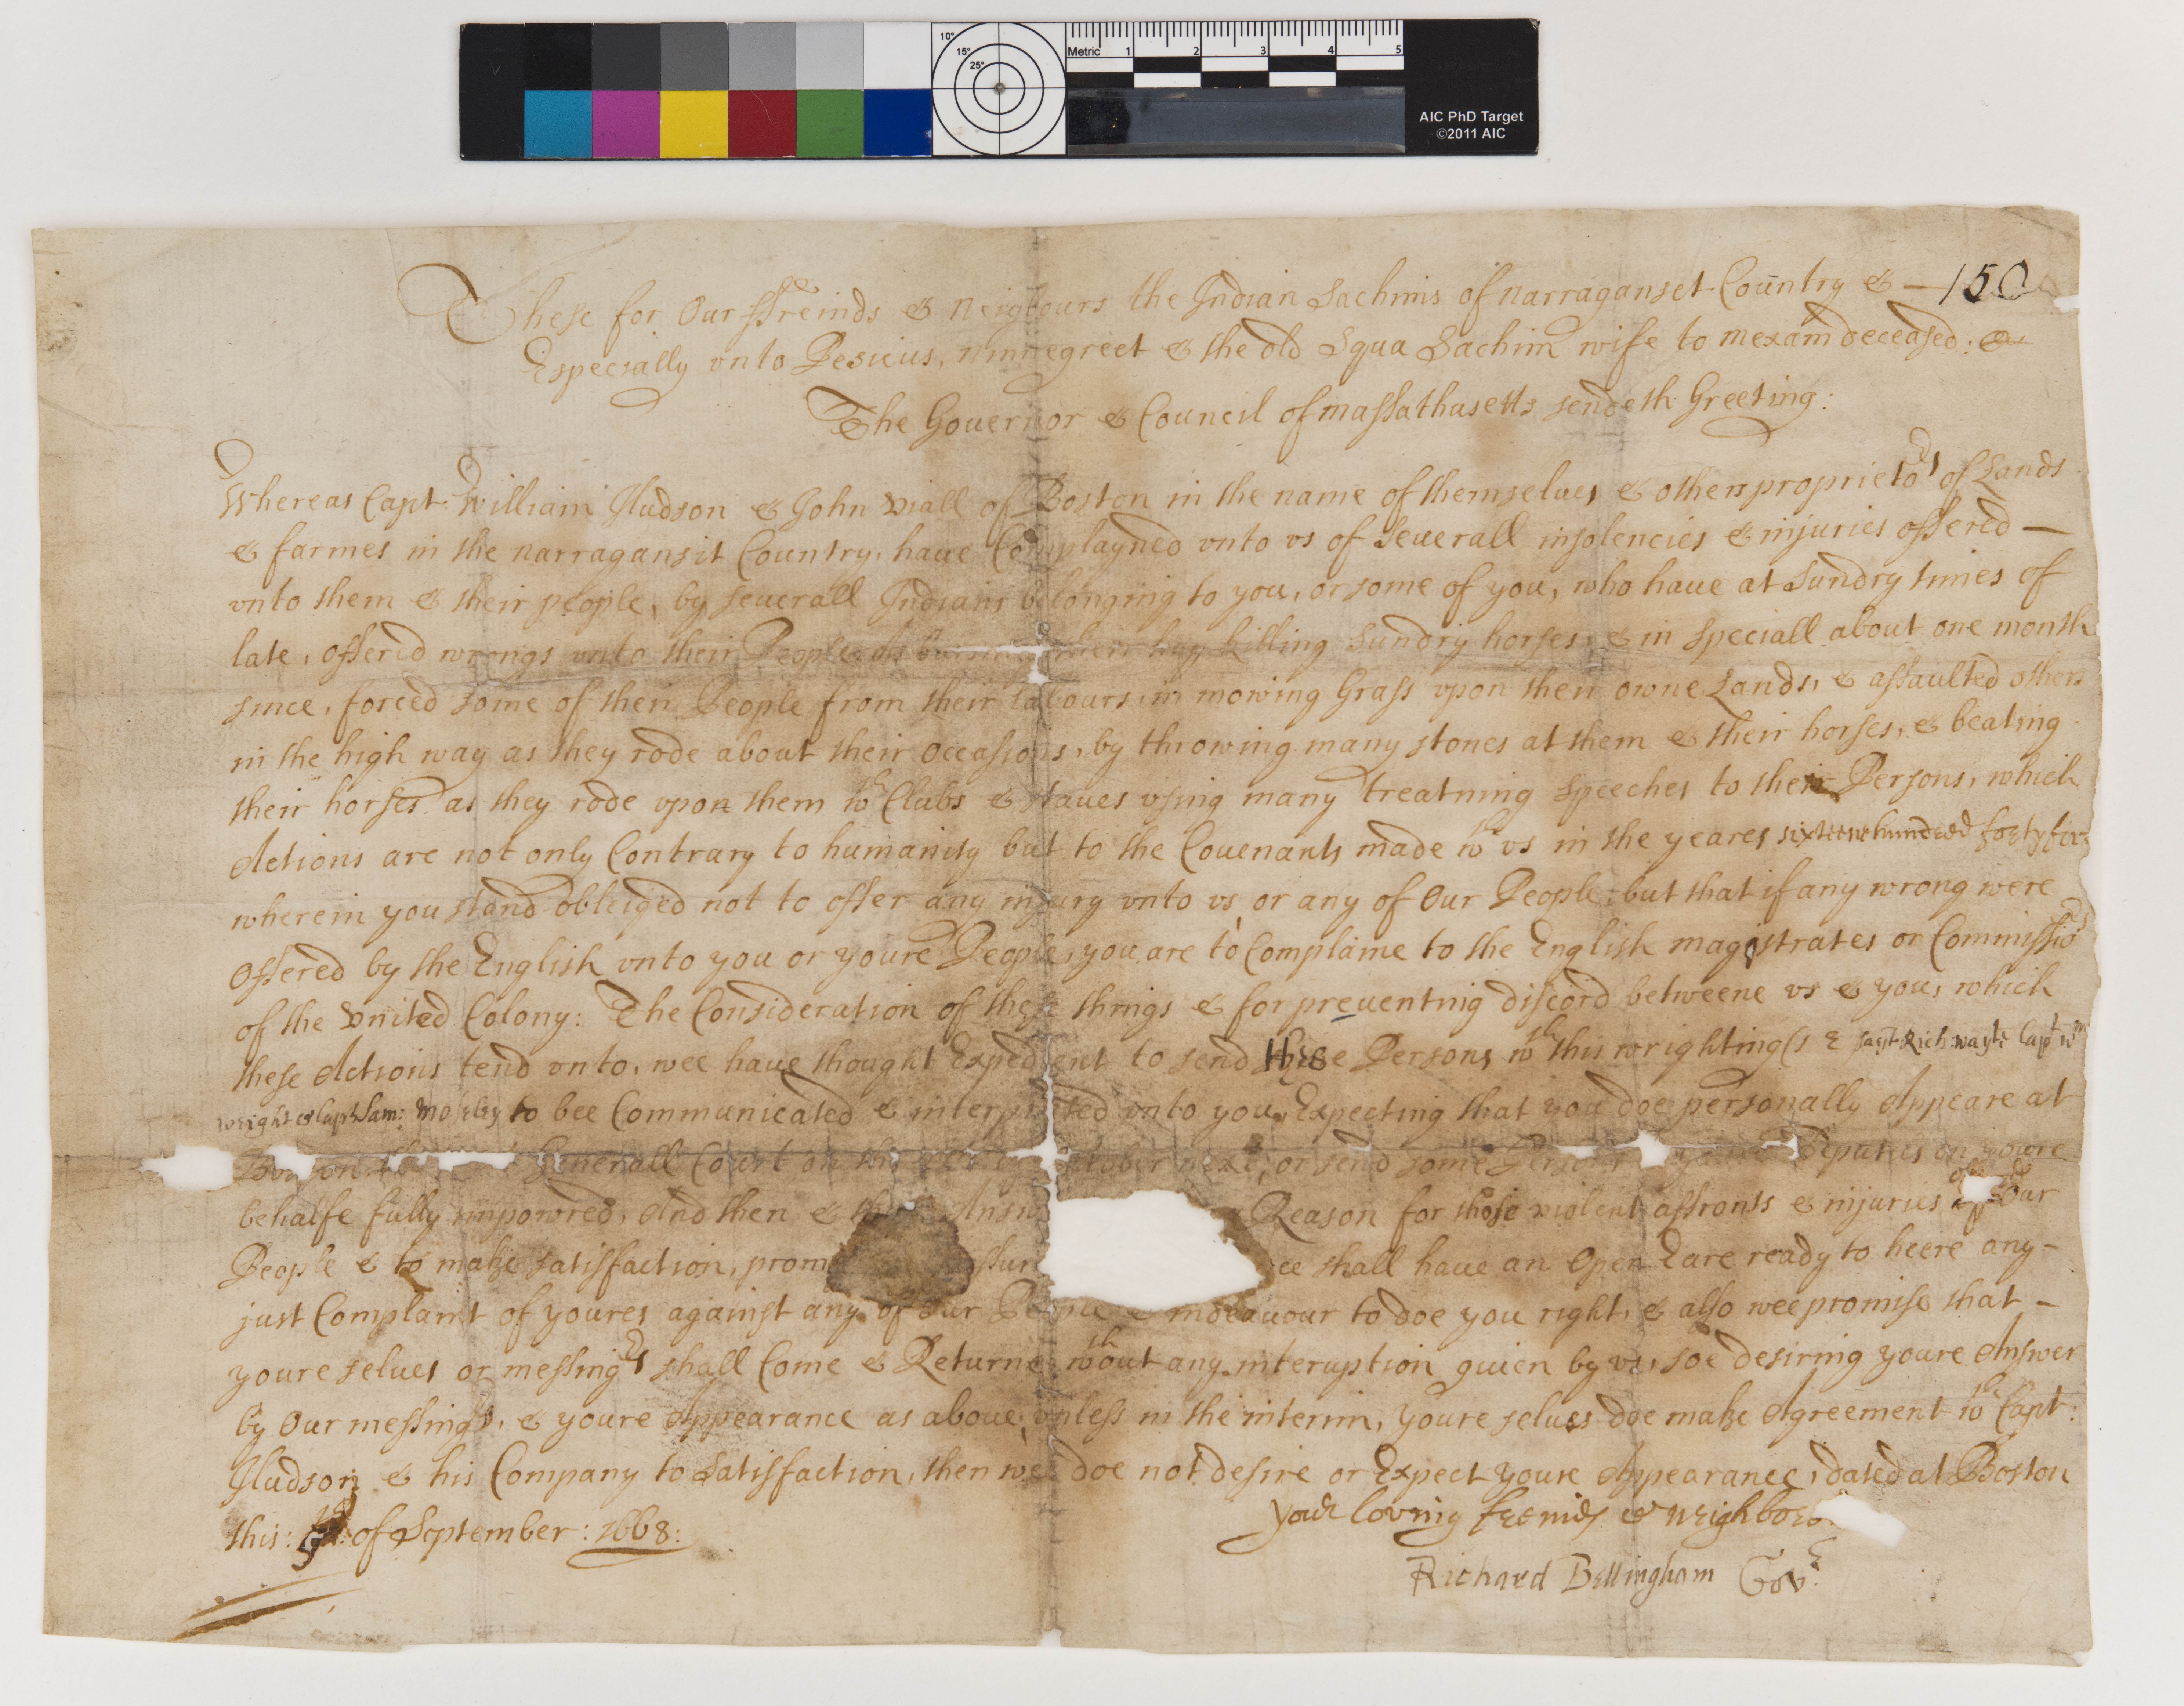 10° 15° 25° Metric 1 2 3 4 5
AIC PhD Target
©2011 AIC
These for Our ffreinds & Neigbours the Indian Sachims of narraganset Country & — 150
Especially vnto Pesicus, ninnegreet & the old Squa Sachim wife to mexam deceased: &
The Gouernor & Council of massathusetts sendeth Greeting:
Whereas Capt: William Hudson & John Viall of Boston in the name of themselues & others proprieto:rs of Lands
& farmes in the narragansit Country, haue Complayned vnto vs of Seuerall insolencies & injuries offered —
vnto them & their people, by seuerall Indians belonging to you, or some of you, who haue at Sundry times of
late, offered wrongs vnto their People As burning their hay killing Sundry horses, & in speciall about one month
since, forced some of their People from their labours in mowing Grass vpon their owne Lands, & assaulted others
in the high way as they rode about their occassions, by throwing many stones at them & their horses, & beating
their horses as they rode vpon them wth Clubs & staues vsing many treatning speeches to their Persons, which
Actions are not only Contrary to humanity but to the Couenants made wth vs in the yeares sixteene hundred forty five
wherein you stand obleiged not to offer any injury vnto vs, or any of Our People but that if any wrong were
Offered by the English vnto you or youre People, you are to Complaine to the English magistrates or Commissiors
of the Vnited Colony: The Consideration of these things & for preuenting discord betweene vs & you, which
these Actions tend vnto, wee haue thought Expedient to send these Persons wth this wrighting(s & Rich: wayte Capt wm
wright & Capt Sam: Moseley to bee Communicated & interpreted vnto you, Expecting that you doe personally Appeare at
Generall Court on the October next, or send some Persons Deputies on youre
behalfe fully impowred, And then & Reason for those violent affronts & injuries Our
People & to make satisfaction, shall haue an Open Eare ready to heere any-
just Complaint of youres against any of Our People & indeauour to doe you right, & also wee promise that -
youre selues or messingrs shall Come & Returne wthout any interuption giuen by vs, soe desiring youre Answer
by Our messingrs, & youre Appearance as aboue, vnless in the interim, youre selues doe make Agreement wth Capt:
Hudson & his Company to Satisfaction, then wee doe not desire or Expect youre Appearance, dated at Boston
this: of September: 1668:
your loving freinds & neighbors
Richard Bellingham Govr